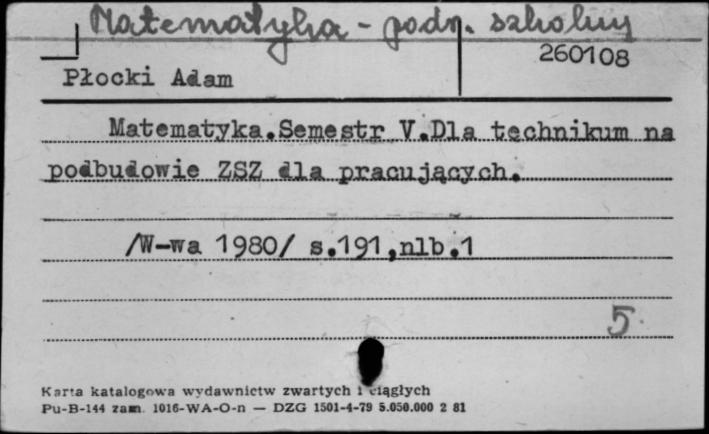 Matematyka - podr. szkolny
260108
Płocki Adam
Matematyka.Semestr V.Dla technikum na
podbudowie ZSZ dla pracujących.
/W-wa 1980/ s.191,nlb.1
5
Karta katalogowa wydawnictw zwartych i ciągłych
Pu-B-144 zam. 1016-WA-O-n — DZG 1501-4-79 5.050.000 2 81